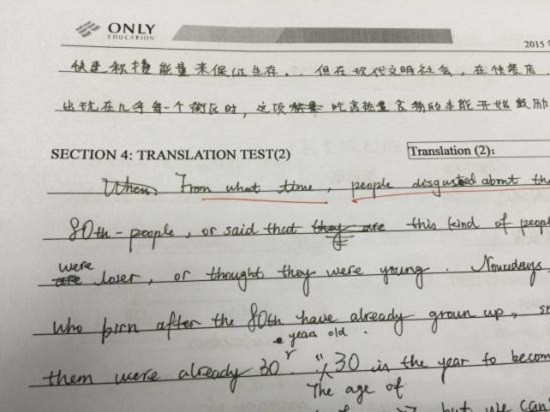 ONLY
EDUCATION
2015
快速积攒能量来保证生存.. 但在现代文明社会,在快餐店
出现在几乎每一个街区时,这项 吃高热量食物的本能开始鼓励
SECTION 4: TRANSLATION TEST(2)
Translation (2):
When From what time, people disgusted about the
80th-people, or said that they are this kind of peop
were
are loser, or thought they were young. Nowdays
who born after the 80th have already grown up, s
year old.
them were already 30 "30 is the year to becom
The age of
but we can